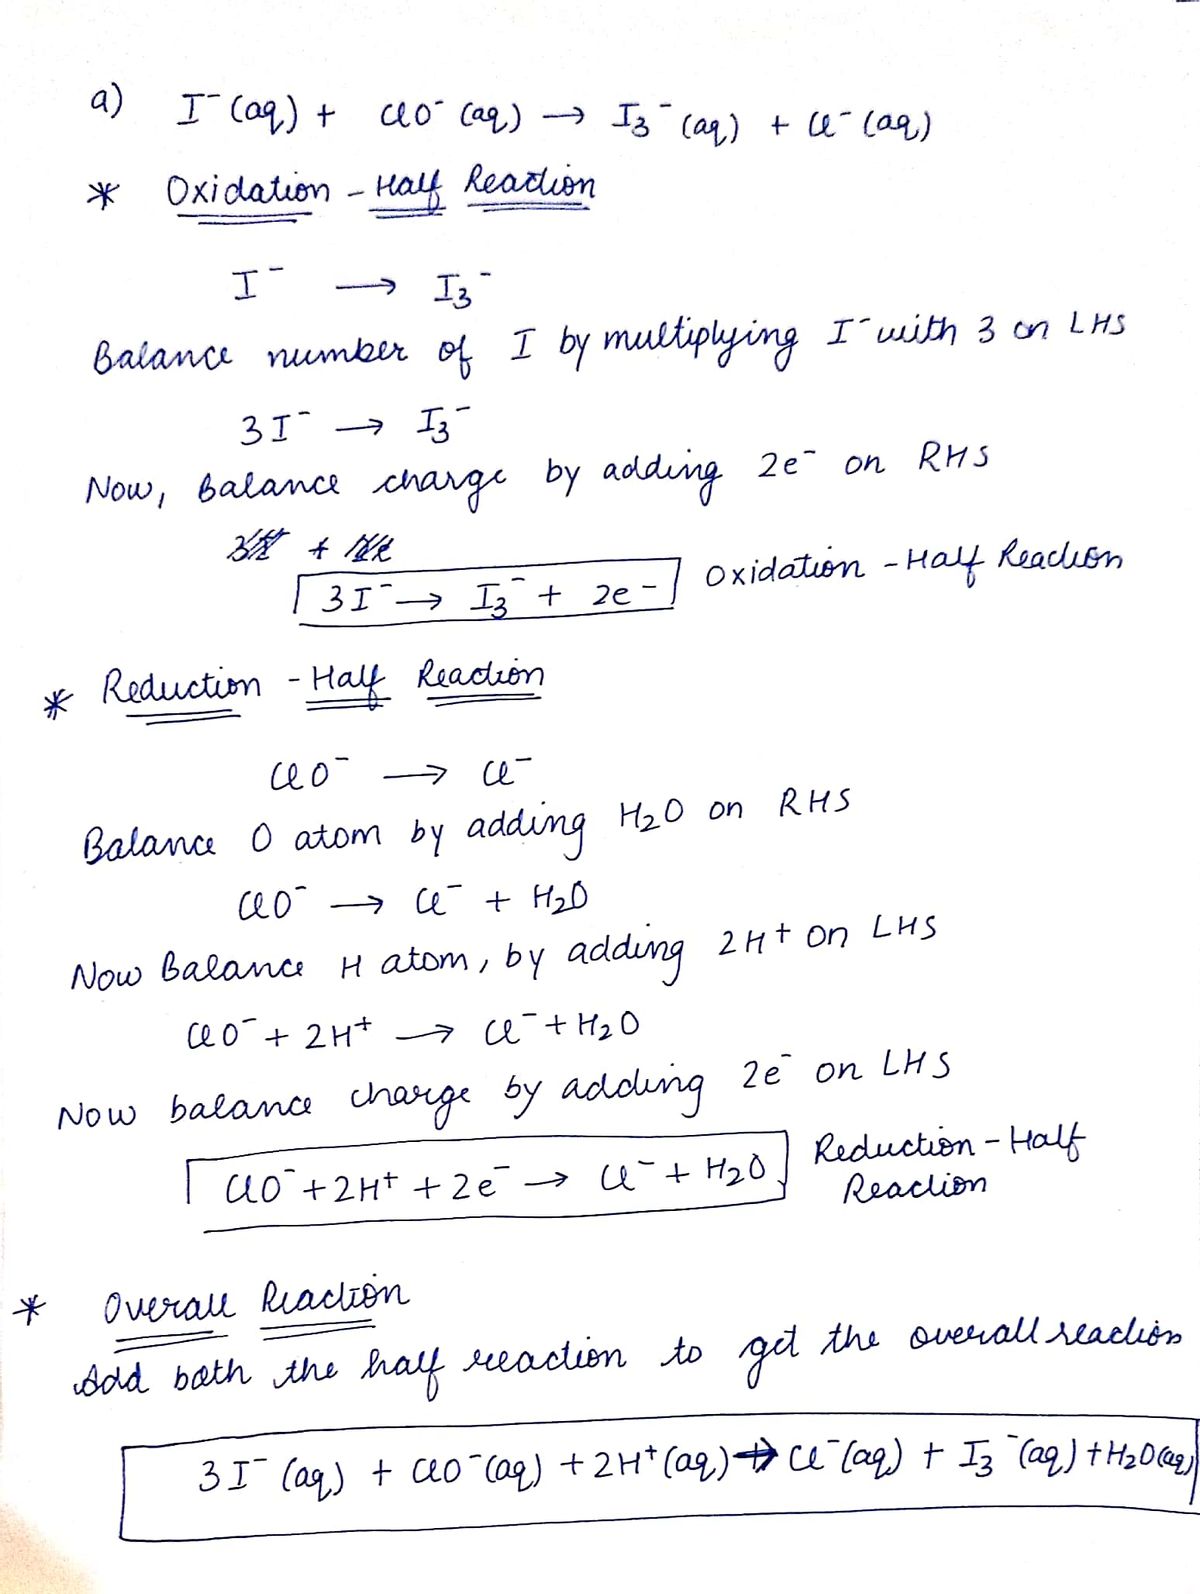 a) I⁻(aq) + ClO⁻(aq) → I₃⁻(aq) + Cl⁻(aq)
* Oxidation - Half Reaction
I⁻ → I₃⁻
Balance number of I by multiplying I⁻ with 3 on LHS
3I⁻ → I₃⁻
Now, Balance charge by adding 2e⁻ on RHS
3I⁻ → I₃⁻ + 2e⁻ Oxidation - Half Reaction
* Reduction - Half Reaction
ClO⁻ → Cl⁻
Balance O atom by adding H₂O on RHS
ClO⁻ → Cl⁻ + H₂O
Now Balance H atom, by adding 2H⁺ on LHS
ClO⁻ + 2H⁺ → Cl⁻ + H₂O
Now balance charge by adding 2e⁻ on LHS
ClO⁻ + 2H⁺ + 2e⁻ → Cl⁻ + H₂O Reduction - Half
Reaction
* Overall Reaction
Add both the half reaction to get the overall reaction
3I⁻(aq) + ClO⁻(aq) + 2H⁺(aq) → Cl⁻(aq) + I₃⁻(aq) + H₂O(aq)